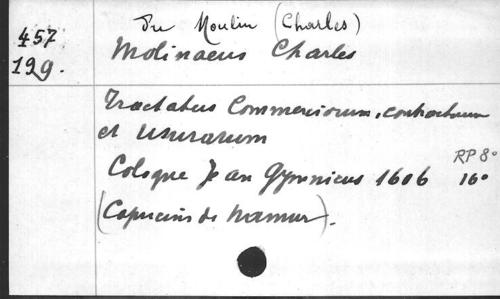 Du Moulin (Charles)
457 Molinaeus Charles
129.
Tractatus Commerciorum, contractuum
et Usurarum
RP 8°
Cologne Jean Gymnicus 1606 16°
(Capucins de Namur).